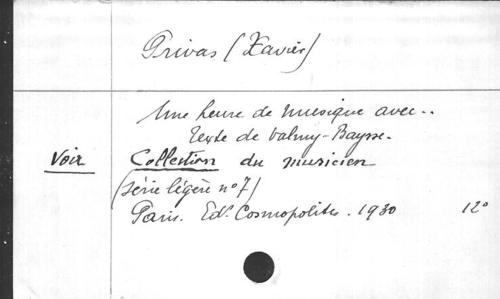 Privas (Xavier)
Une heure de musique avec..
Texte de Valmy-Baysse.
Voir Collection du musicien
(série légère n° 7)
Paris. Ed. Cosmopolites. 1930 12°